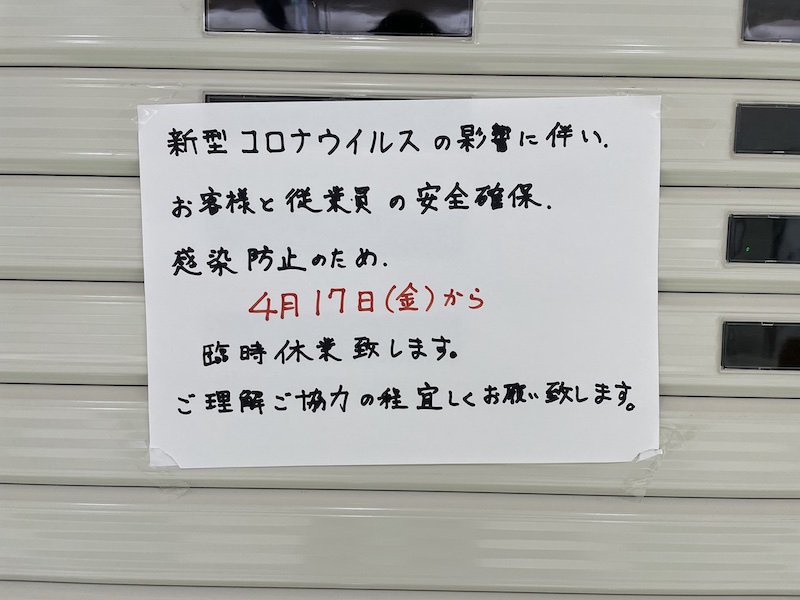 新型コロナウイルスの影響に伴い、
お客様と従業員の安全確保、
感染防止のため、
4月17日(金)から
臨時休業致します。
ご理解ご協力の程宜しくお願い致します。